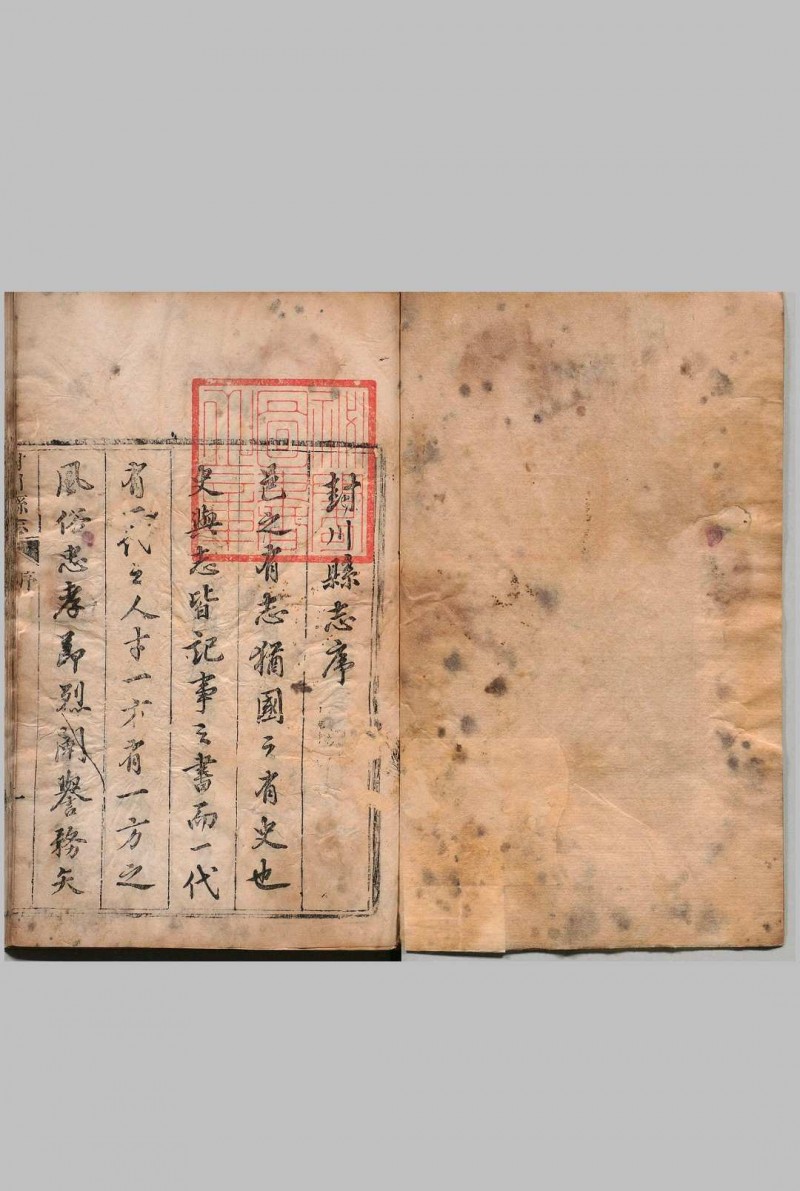 封川縣志序
邑之有志猶國之有史也
史與志皆記事之書而一代
有一代之人才一方有一方之
風俗忠孝節烈聞譽務矢
封川縣志
序
一